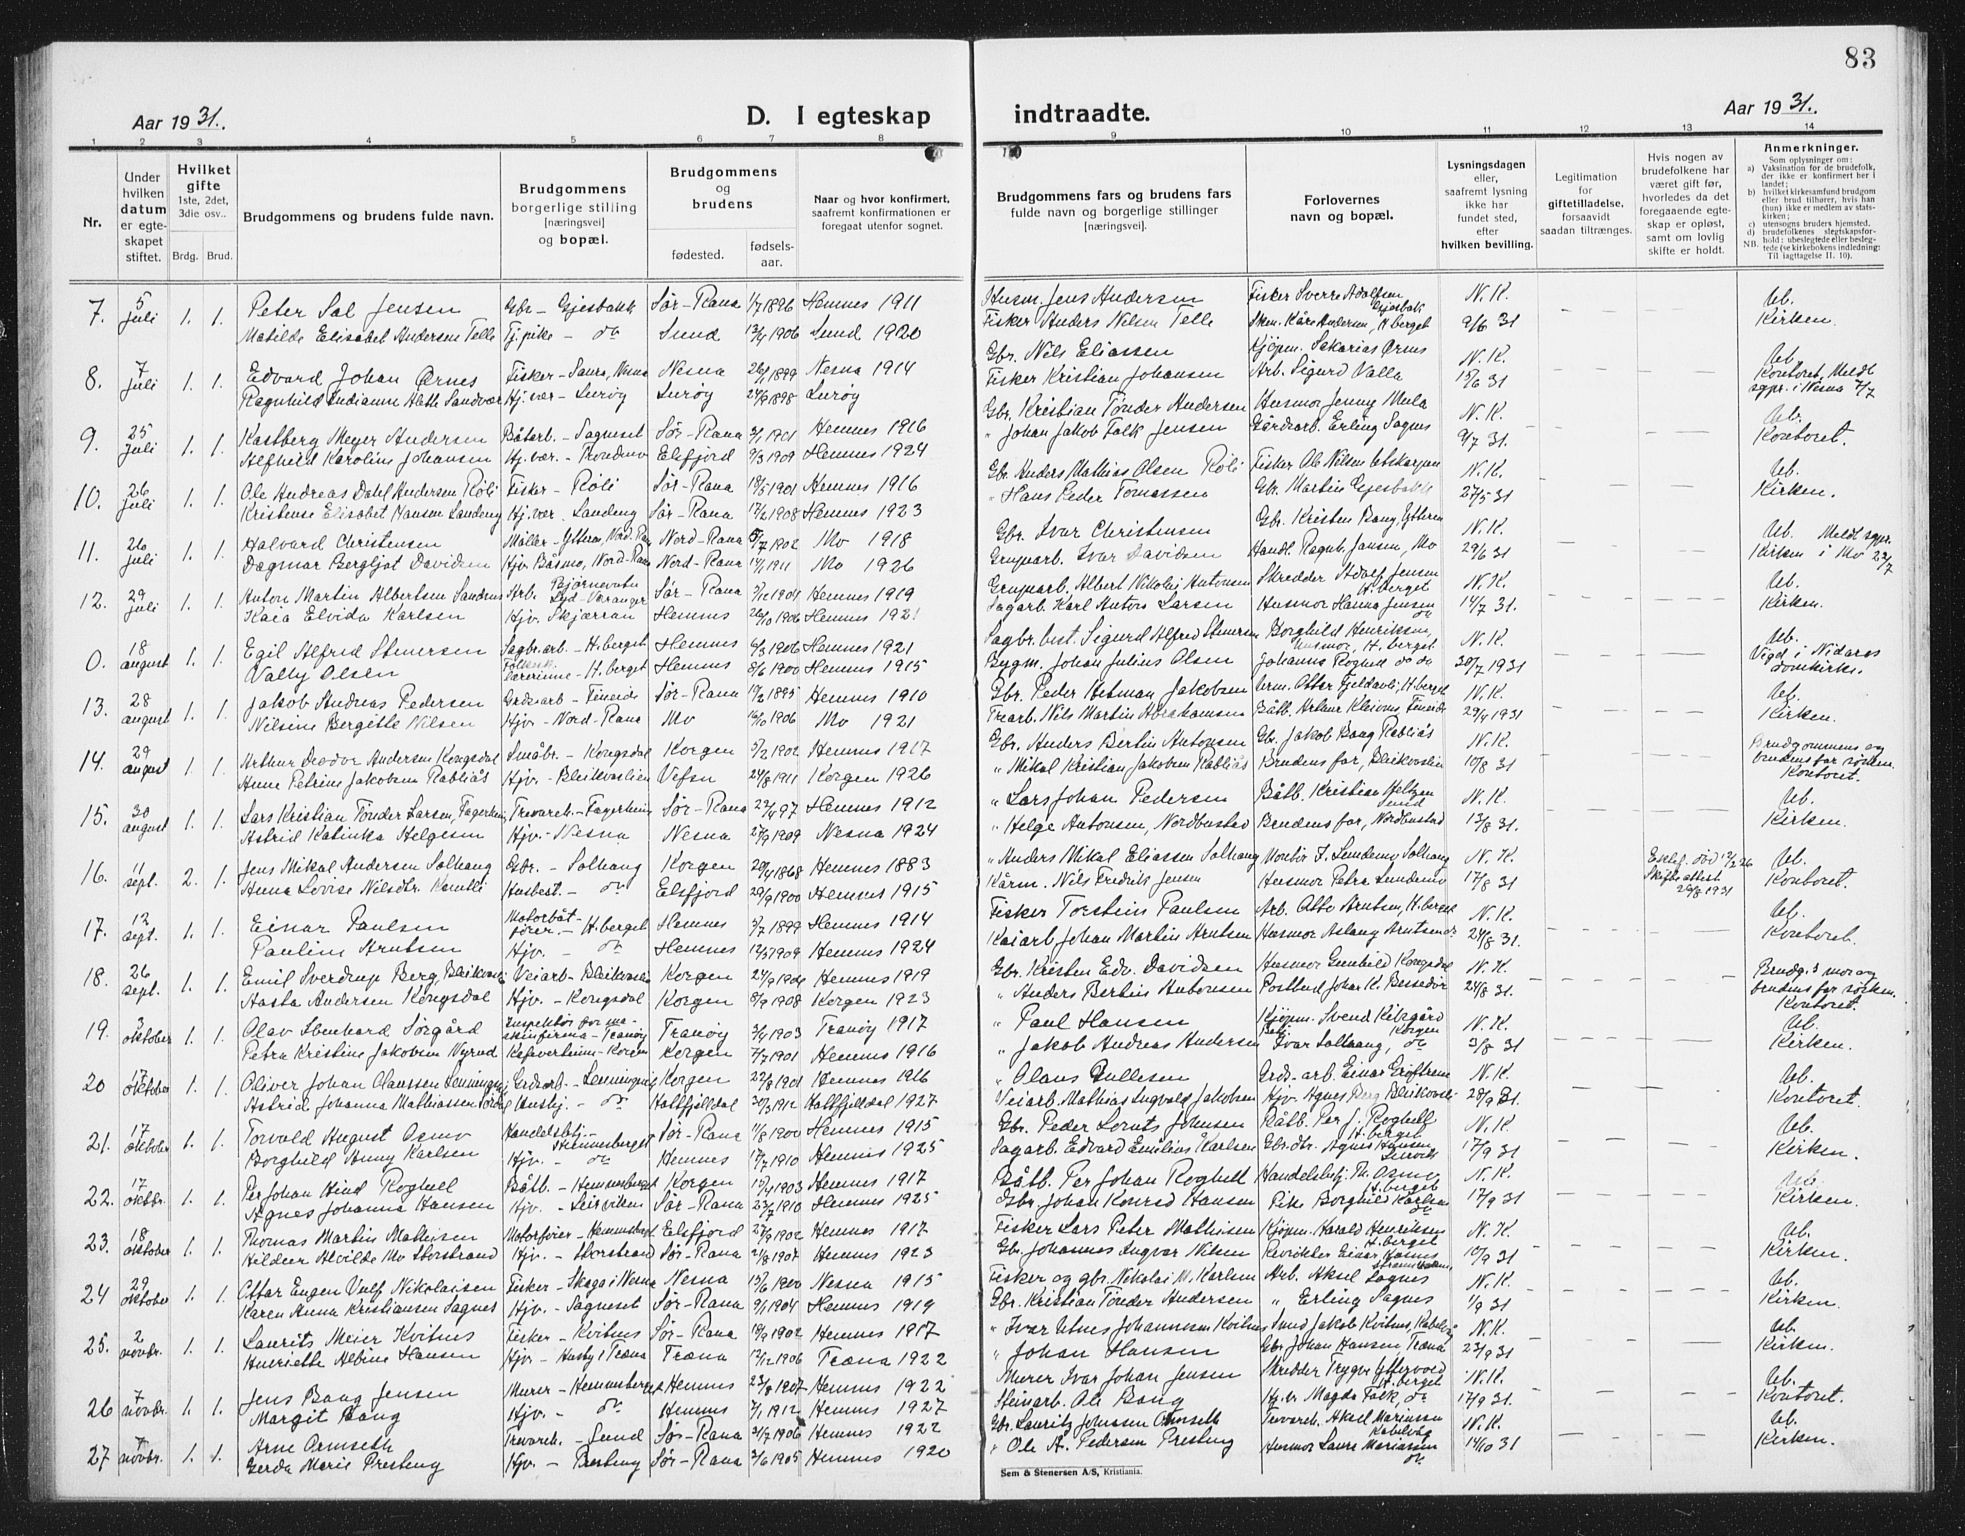 83
Aar 1931.
D. I egteskap
indtraadte.
Aar 1931.
1 2 3 4 5 6 7 8 9 10 11 12 13 14
Nr.
Under hvilken datum er egteskapet stiftet.
Hvilket gifte 1ste, 2det, 3die osv..
Brdg. Brud.
Brudgommens og brudens fulde navn.
Brudgommens borgerlige stilling [næringsvei] og bopæl.
Brudgommens og brudens
fødested.
fødsels-aar.
Naar og hvor konfirmert, saafremt konfirmationen er foregaat utenfor sognet.
Brudgommens fars og brudens fars fulde navn og borgerlige stillinger [næringsvei].
Forlovernes navn og bopæl.
Lysningsdagen eller, saafremt lysning ikke har fundet sted, efter hvilken bevilling.
Legitimation for giftetilladelse, forsaavidt saadan tiltrænges.
Hvis nogen av brudefolkene har været gift før, hvorledes da det foregaaende egteskap er opløst, samt om lovlig skifte er holdt.
Anmerkninger.
Som oplysninger om:
a) Vaksination for de brudefolk, der ikke er konfirmert her i landet;
b) hvilket kirkesamfund brudgom eller brud tilhører, hvis han (hun) ikke er medlem av statskirken;
c) utensogns bruders hjemsted.
d) brudefolkenes slegtskapsforhold: ubeslegtede eller beslegtede (se kirkebokens indledning:
NB. Til iagttagelse II. 10).
7. 5 juli 1. 1. Peter Sal Jensen Gbr - Gjesbakk Sør-Rana 1/7 1896 Hemnes 1911 Husm. Jens Andersen Fisker Sverre Adolfsen Gjesbak N.K. Ub.
Matilde Elisabet Andersen Telle Tj.pike - do Sund 13/4 1906 Sund 1920 Fisker Anders Nilsen Telle Skom. Kåre Andersen, H.berget 9/6 31 Kirken.
8. 7 juli 1. 1. Edvard Johan Ørnes Fisker - Saura, Nesna Nesna 26/1 1899 Nesna 1914 Gbr. Nils Eliassen Kjøpm. Sakarias Ørnes N.K. Ub.
Hj.vær - Lurøy Lurøy 24/9 1898 Lurøy Fisker Kristian Johansen Arb. Sigurd Valla 15/6 31 Kontoret. Meldt sgpr. i Nesna 7/7
9. 25 juli 1. 1. Kastberg Meyer Andersen Båtarb. - Sagneset Sør-Rana 3/1 1901 Hemnes 1916 Gbr. Kristian Tønder Andersen Husmor Jenny Mula N.K. Ub.
Alfhild Karoline Johansen Hj.vær. Elsfjord 9/3 1909 Hemnes 1924 " Johan Jakob Falk Jensen Gårdsarb. Erling Sagnes 9/7 31. Kontoret.
10. 26 juli 1. 1. Ole Andreas Dahl Andersen Røli Fisker - Røli Sør-Rana 18/5 1901 Hemnes 1916 Gbr. Anders Mathias Olsen Røli Fisker Ole Nilsen N.K. Ub.
Kristense Elisabet Hansen Sandeng Hj.vær. Sandeng Sør-Rana 17/2 1908 Hemnes 1923 " Hans Peder Tomassen Gbr. Martin Gjesbakk 27/5 31 Kirken.
11. 26 juli 1. 1. Halvard Christensen Møller - Ytteren, Nord-Rana Nord-Rana 5/7 1902 Mo 1918 Gbr. Ivar Christensen Gbr. Kristen Bang, Ytteren N.K. Ub. Meldt sgpr.
Dagmar Bergljot Davidsen Hjv. Båsmo, Nord-Rana Nord-Rana 14/1 1911 Mo 1926 Grubearb. Ivar Davidsen Handl. Ragnv. Jansen, Mo 29/6 31 Kirken i Mo 22/7
12. 29 juli 1. 1. Anton Martin Albertsen Sandnes Arb. Bjørnevatn Syd-Varanger Sør-Rana 1904 Hemnes 1919 Grubearb. Albert Nikolai Antonsen Skredder Adolf Jensen H.berget N.K. Ub.
Kaia Elvida Karlsen Hjv. Skjærran Hemnes 26/10 1906 Hemnes 1921 Sagarb. Karl Anton Larsen Husmor Hanna Jensen do 14/7 31. Kirken.
0. 18 august 1. 1. Egil Alfred Stenersen Sagbr.arb - H.berget Hemnes 6/3 1906 Hemnes 1921 Sagbr. best. Sigurd Alfred Stenersen Borghild Henriksen Husmor, H.berget N.K. Ub.
Valby Olsen Folkesk. lærerinne - H.berget Hemnes 8/6 1900 Hemnes 1915 Bygm. Johan Julius Olsen Johanna Roghell do do 30/7 1931 Vigd i Nidaros domkirke.
13. 28 august 1. 1. Jakob Andreas Pedersen Grdsarb - Fineide Sør-Rana 19/2 1895 Hemnes 1910 Gbr. Peder Hetman Jakobsen Otter Fjeldavli, H.berget N.K. Ub.
Nilsine Bergitte Nilsen Hjv - Nord-Rana Mo 16/10 1906 Mo 1921 Trearb. Nils Martin Abrahamsen Båtb. Arthur Kleivnes, Fineide 29/4 1931 Kirken.
14. 29 august 1. 1. Arthur Andersen Kongsdal Småbr. - Kongsdal Korgen 5/2 1902 Hemnes 1917 Gbr. Anders Bertin Antonsen Gbr. Jakob Bang Rabliås N.K. Brudgommens og
Anne Petrine Jakobsen Rabliås Hjv. - Bleikvaslien Vefsn 24/8 1911 Korgen 1926 " Mikal Kristian Jakobsen Rabliås Brudens far, Bleikvslia 10/8 31 brudens far søsken. Kontoret.
15. 30 august 1. 1. Lars Kristian Tønder Larsen, Fagerheim Trevareb. - Fagerheim Sør-Rana 22/4 97 Hemnes 1912 " Lars Johan Pedersen Båtb. Kristian Meltzen Sund N.K. Ub.
Astrid Katinka Helgesen Hjv. - Nesna Nesna 27/9 1909 Nesna 1924 " Helge Antonsen, Nordbustad Brudens far, Nordbustad 13/8 31. Kirken.
16. 11 sept. 2. 1. Jens Mikal Andersen Solhaug Gdr. - Solhaug Korgen 29/4 1868 Hemnes 1883 " Anders Mikal Eliassen Solhaug Solhaug N.K. Enkef. død 12/2 26 Ub.
Anna Lovise Nilsdtr. Husbest. - do Elsfjord 29/6 1900 Hemnes 1915 Kårm. Nils Fredrik Jensen Husmor Petra 17/8 31 Skifte attest 26/8 1931 Kontoret.
17. 12 sept. 1. 1. Einar Paulsen Motorbåtfører - H.berget Hemnes 5/7 1899 Hemnes 1914 Fisker Torstein Paulsen Arb. Otto Arntsen, H.berget N.K. Ub.
Pauline Arntsen Hjv. - do Hemnes 12/3 1909 Hemnes 1924 Kaiarb. Johan Martin Arntsen Husmor Aslaug Arntsen do 24/8 31. Kontoret.
18. 26 sept. 1. 1. Emil Sverdrup Berg, Bleikvasli Veiarb - Bleikvasli Korgen 24/9 1904 Hemnes 1919 Gbr. Kristen Edv. Davidsen Husmor Gunhild Kongsdal N.K. Brudg.s mor og
Aasta Andersen Kongsdal Hjv. - Kongsdal Korgen 8/9 1908 Korgen 1923 " Anders Bertin Antonsen Postbud Johan K. Bessedør 24/8 31. brudens far søsken. Kontoret.
19. 3 oktober 1. 1. Olav Ebenhard Sørgård Inspektør for maskinfirma - Tranøy Tranøy 3/4 1903 Tranøy 1917 " Paul Hansen Kjøpm. Svend Kibsgård Korgen N.K. Ub.
Petra Kristine Jakobsen Nyrud Kafevertinne - Korgen Korgen 7/7 1901 Hemnes 1916 " Jakob Andreas Andersen Betj. Ivar Solhaug, do 3/8 31 Kirken.
20 17 oktober 1. 1. Oliver Johan Olaussen Lenningsvik Grdsarb. - Lenningsvik Korgen 22/8 1901 Hemnes 1916 " Olaus Tullesen Grds-arb. Einar Grøftrem N.K. Ub.
Astrid Johanna Mathiassen Hushj. - do Hattfjelldal 30/3 1912 Hattfjelldal 1927 Veiarb. Mathias Ingvald Jakobsen Hjv. Agnes Berg Bleikvasli 28/9 31. Kontoret.
21. 17 oktober 1. 1. Torvald August Osmo Handelsbtj. - Hemnesberget Sør-Rana 11/8 1900 Hemnes 1915 Gbr. Peder Lornts Johnsen Båtb. Per J. Roghell H.berget N.K Ub.
Borghild Anny Karlsen Hjv. - do Hemnes 17/7 1910 Hemnes 1925 Sagarb. Edvard Emilius Karlsen Gbrdtr. Agnes Hansen Leirvik 17/9 31 Kirken.
22. 17 oktbr. 1. 1. Per Johan Hind Roghell Båtb. - Hemnesberget Korgen 15/4 1903 Hemnes 1917 Båtb. Per Johan Roghell Handelsbtj. Th. Osmo H.berget N.K. Ub.
Agnes Johanna Hansen Hjv. - Leirviken Sør-Rana 27/7 1910 Hemnes 1925 Gbr. Johan Konrad Hansen Pike Borghild Karlsen do 17/9 31 Kirken.
23. 18 oktober 1. 1. Thomas Martin Mathisen Motorfører - Hemnesberget Elsfjord 27/9 1902 Hemnes 1917 Fisker Lars Peter Mathisen Kjøpm. Harald Henriksen H.berget N.K. Ub.
Hildur Alvilde Mo Storstrand Hjv. - Storstrand Sør-Rana 21/8 1907 Hemnes 1923 Gbr. Johannes Ingvar Nilsen Einar Hames 10/9 31 Kirken.
24 29 oktober 1. 1. Ottar Eugen Vulf Nikolaisen Fisker - Skaga i Nesna Nesna 15/6 1900 Nesna 1915 Fisker og gbr. Nikolai M. Karlsen Arb. Aksel Sagnes N.K. Ub.
Karen Anna Kristiansen Sagnes Hjv. - Sagneset Sør-Rana 9/1 1904 Hemnes 1919 Gbr. Kristian Tønder Andersen " Erling Sagnes 1/9 31 Kirken.
25. 2 novbr. 1. 1. Laurits Meier Kvitnes Fisker - Kvitnes Sør-Rana 18/9 1902 Hemnes 1917 " Ivar Utnes Johannesen Kvitnes Jakob Kvitnes, Kabelvåg N.K. Ub.
Henriette Albine Hansen Hjv. - Husby i Træna Træna 12/12 1906 Træna 1922 " Johan Hansen Gbr. Johan Hansen, Træna 23/9 31 Kirken.
26 7 novbr. 1. 1. Jens Bang Jensen Murer - Hemnesberget Hemnes 23/8 1907 Hemnes 1922 Murer Ivar Johan Jensen Skredder Trygve Yttervold H.berget N.K. Ub.
Margit Bang Hjv. - do Hemnes 7/1 1912 Hemnes 1927 Steinarb. Ole Bang Hj.v. Magda Falk, do 17/9 31. Kontoret.
27 7 novbr. 1. 1. Arne Ormseth Trevareb. - Sund Sør-Rana 31/7 1906 Hemnes 1922 Gbr. Lauritz Johansen Ormseth Trevareb. Aksel Mariussen Kabelvåg N.K. Ub.
Gerda Marie Presteng Hjv. - Presteng Sør-Rana 3/6 1905 Hemnes 1920 " Ole A. Pedersen Presteng Husmor Laura Mariassen do 14/10 31 Kirken.
Sem & Stenersen A/S, Kristiania.